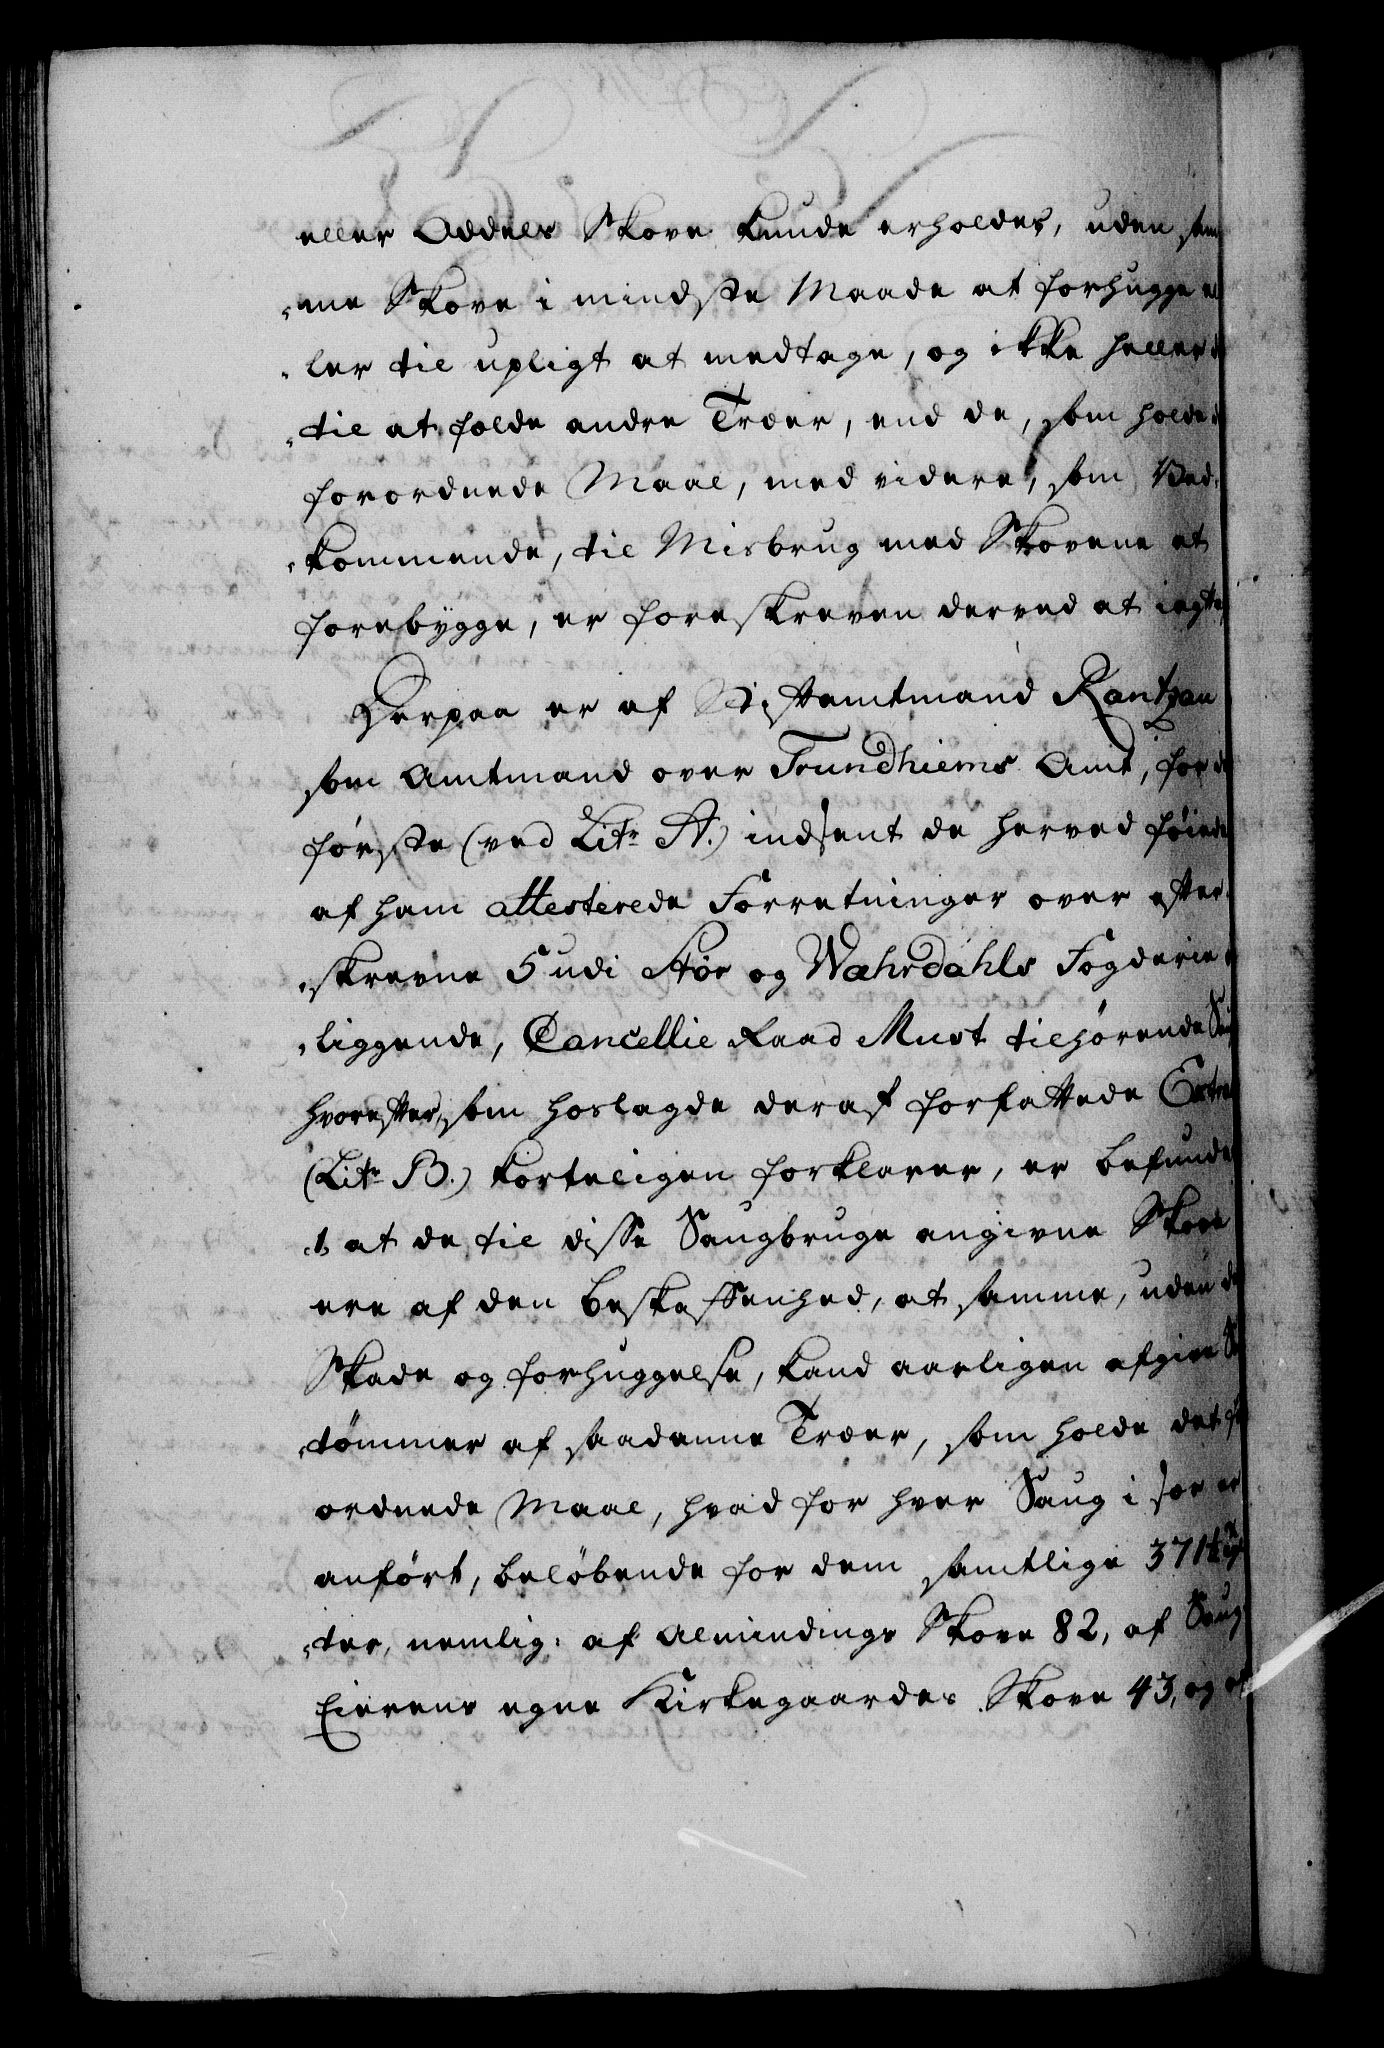 eller Oddels Skove kunde erholdes, uden sam
„me Skove i mindste Maade at forhugge el
„ler til upligt at medtage, og ikke heller
„til at fælde andre Træer, end de, som holde
forordnede Maal, med videre, som Ved„
„kommende, til Misbrug med Skovene at
forebygge, er foreskreven derved at iagt
Herpaa er af Stiftamtmand Rantzau
som Amtmand over Trundhiems Amt, for d
første (ved Litr A.) indsent de herved føiede
af ham attesterede Forretninger over efter„
„skrevne 5 udi Stør og Wæhrdahls Fogderie
„liggende, Cancellie Raad Must tilhørende Sau
hvorefter, som hoslagde deraf forfattede Extra
(Litr B.) korteligen forklarer, er befunde
1, at de til disse Saugbruge angivne Skove
ere af den beskaffenhed, at samme, uden d
Skade og forhuggelse, kand aarligen afgive
„tømmer af saadanne Træer, som holde det f
ordnede Maal, hvad for hver Saug i sær er
anført, beløbende for dem samtlige 371 tyl
„ter, nemlig: af Almindings Skove 82, af Saug
Eierens egne Kirkegaardes Skove 43, og af